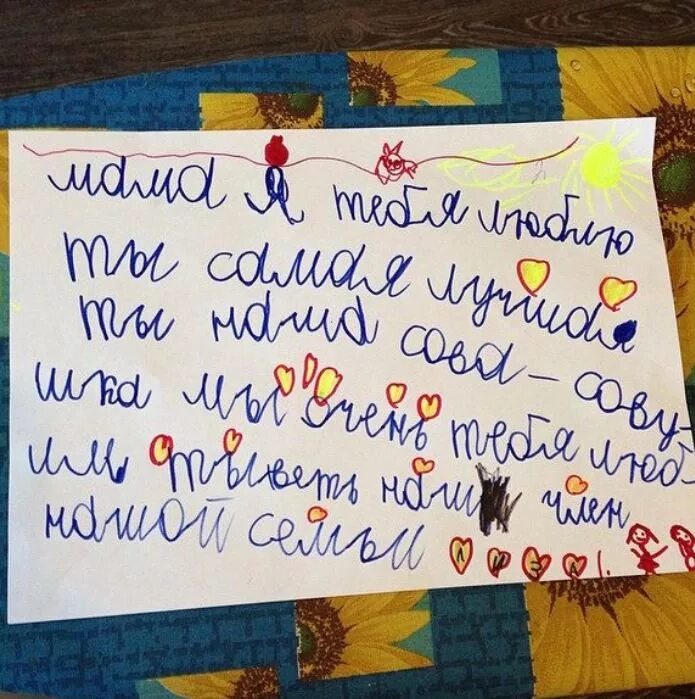 мама я тебя люблю
ты самая лучшая
ты наша сова-сову-
шка мы очень тебя люб-
им тыветь наш член
нашой семьи